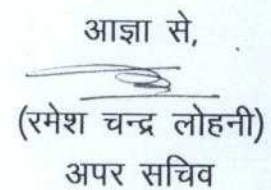 आज्ञा से,
(रमेश चन्द्र लोहनी)
अपर सचिव